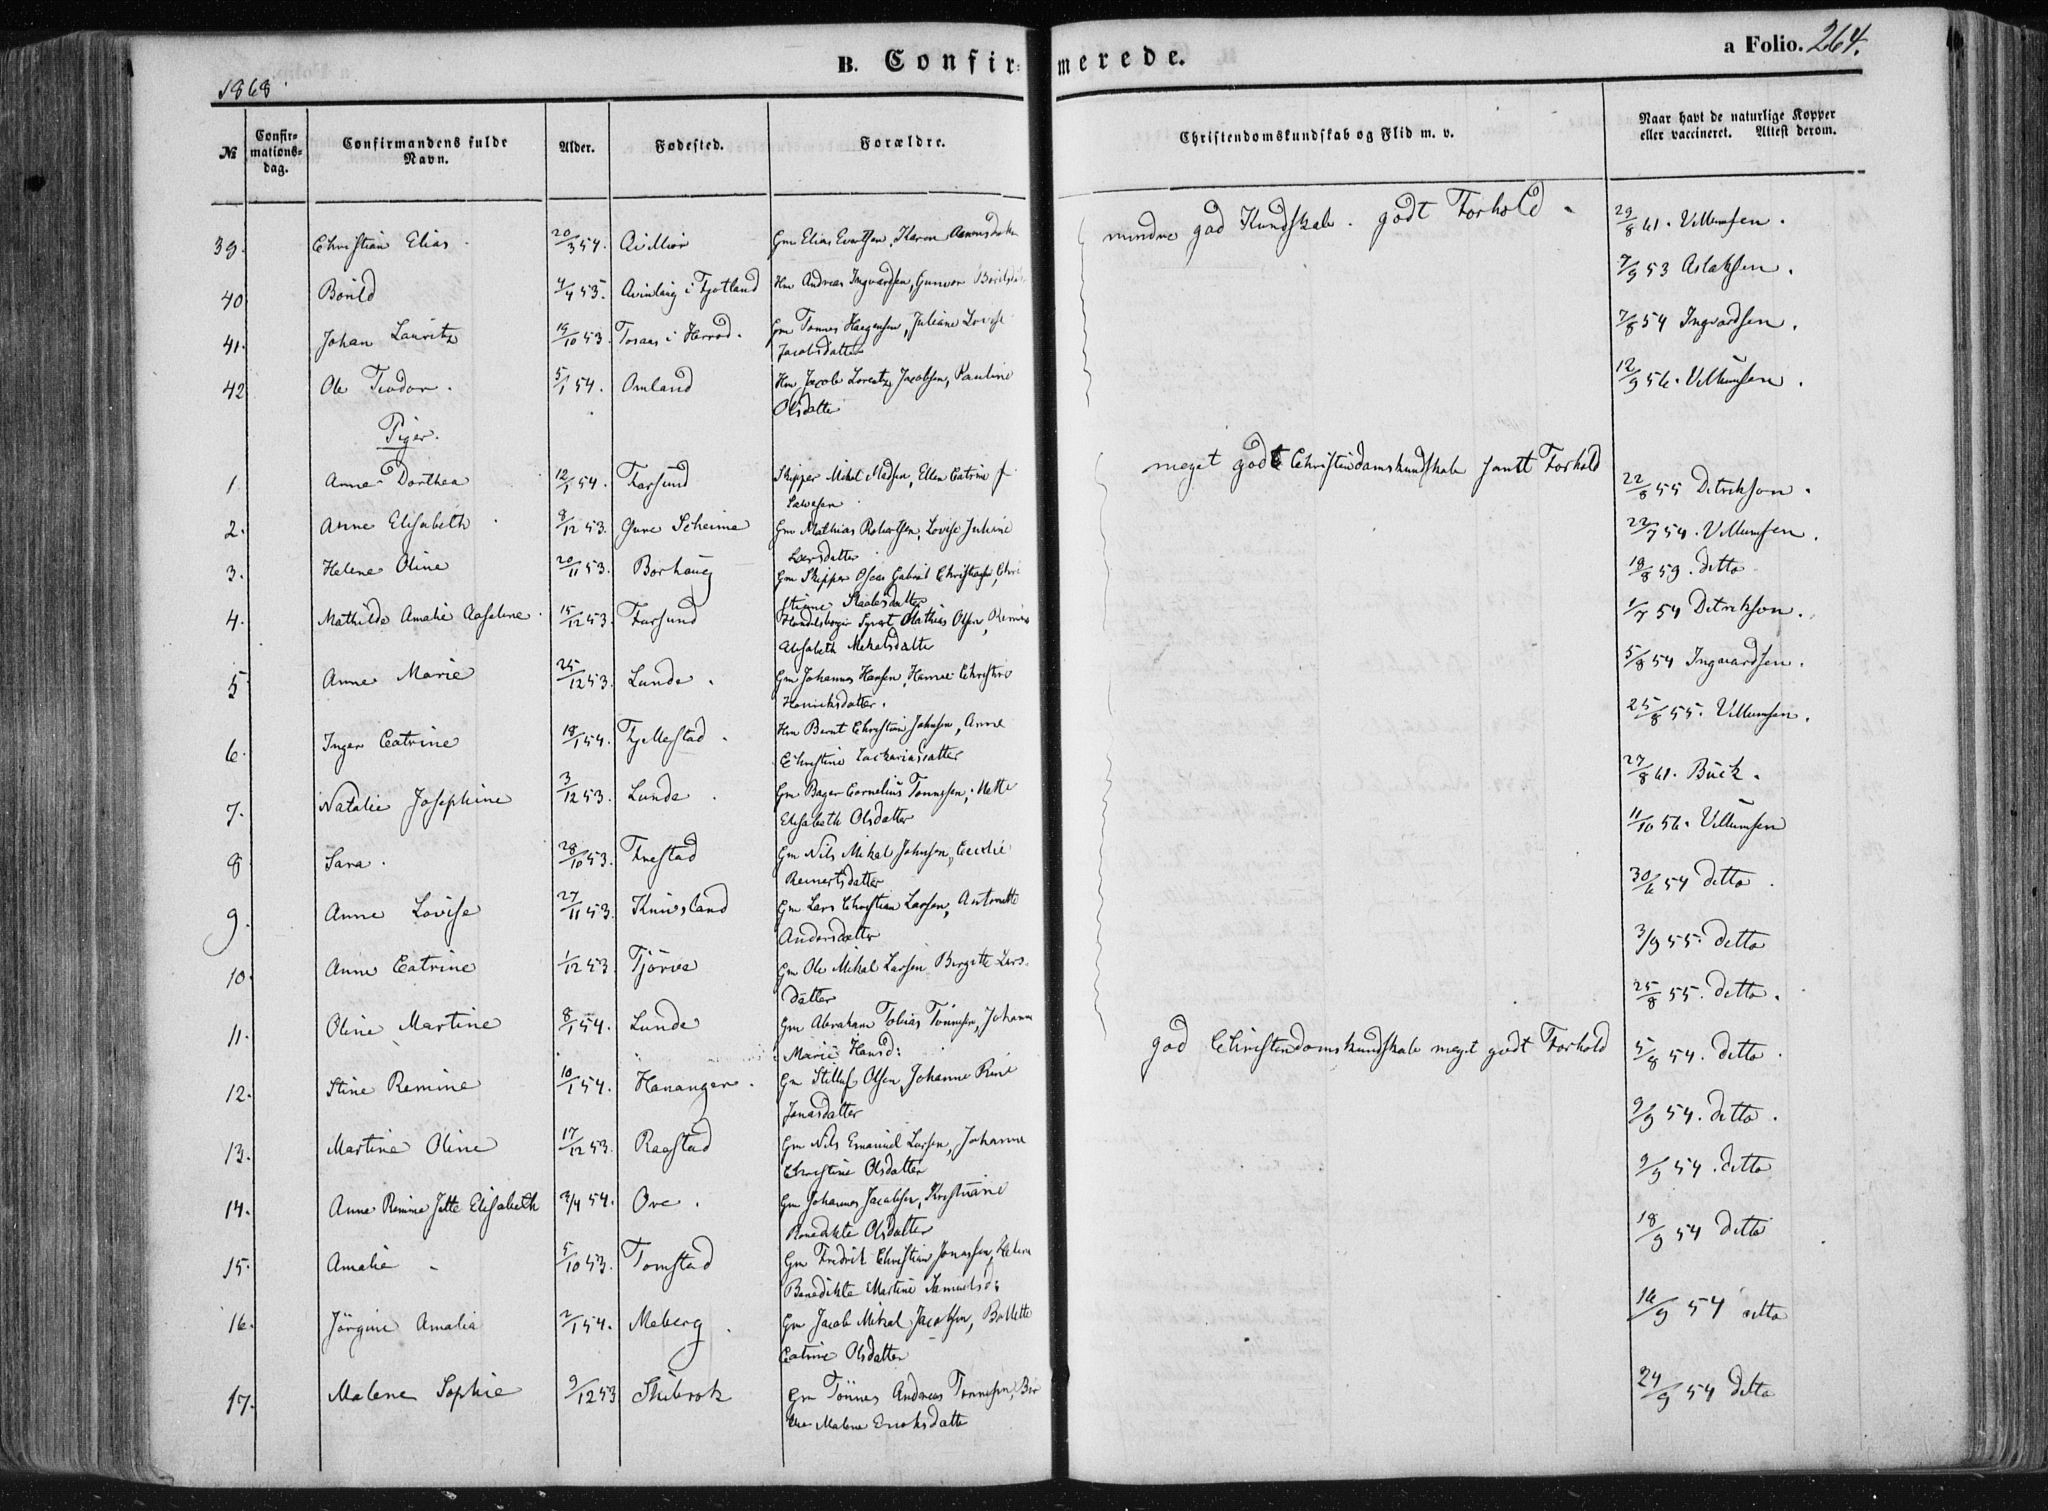 B. Confirmerede.
a Folio. 264.
1868
№ Confirmationsdag. Confirmandens fulde Navn. Alder. Fødested. Forældre. Christendomskundskab og Flid m. v. Naar havt de naturlige Kopper eller vaccineret. Attest derom.
39. Christian Elias. 20/3 54. Gm Elias Evertsen, Karen mindre god Kundskab. godt Forhold. 29/8 61. Villumsen.
40 Borild 4/4 53. i Fjotland Hm Andreas Ingvardsen, Gunvor 7/9 53 Aslaksen.
41. Johan Lauritz 19/10 53. i Herrad. Gm Tønnes Haagensen, Juliane Lovise 7/8 54 Ingvardsen.
Jacobsdatter
42 Ole Teodor. 5/1 54. Omland Hm Jacob Lorentz Jacobsen, Pauline 12/9 56. Villumsen.
Olsdatter
Piger.
1 Anne Dorthea 12/1 54. Farsund Skipper Mikal Madsen, Ellen Catrine f. meget godt Christendomskundskab samt Forhold 22/8 55 Detrikson.
2. Anne Elisabeth. 8/12 53. Gm Mathias Robertsen, Lovise Juliane 22/7 54. Villumsen.
Larsdatter
3. Helene Oline 20/11 53. Borhaug Gm Skipper Gabriel Christophersen, Chri 19/8 59. ditto
stiane
4. Mathilde Amalie Aaselene. 15/12 53 Farsund Syvert Mathias Olsen, 1/7 54 Detrikson.
Elisabeth Mikalsdatte
5 Anne Marie 25/12 53. Lunde. Gm Johannes Hansen, Hanne Christine 5/8 54 Ingvardsen.
Henriksdatter.
6. Inger Catrine 18/1 54. Fjellestad. Hm Bernt Christian Johnsen, Anne 25/8 55. Villumsen.
Christine Zachariasdatter
7. Natalie Josephine 3/12 53. Lunde. Gm Bager Cornelius Tønnesen, Mette 27/8 61. Buck.
Elisabeth Olsdatter
8 Sara. 28/10 53. Frestad Gm Nils Mikal Johnsen, Cecilie 11/10 56. Villumsen
Reinertsdatter
9. Anne Lovise 27/11 53. Knivsland Gm Lars Christian Larsen, Antonette 30/6 54 ditto.
Andersdatter
10. Anne Catrine 1/12 53. Tjørve Gm Ole Mikal Larsen, Birgitte Lars- 3/9 55. ditto
datter
11. Oline Martine 8/1 54. Lunde Gm Abraham Tobias Tønnesen, Johanne 25/8 55. ditto.
Marie Hansd:
12. Stine Remine 10/1 54. Hananger. Gm Olsen, Johanne Rine god Christendomskundskab meget godt Forhold 5/8 54. ditto.
Jonasdatter
13. Martine Oline 17/12 53. Raastad Gm Nils Emanuel Larsen, Johanne 9/9 54. ditto.
Christine Olsdatter
14. Anne Remine Jette Elisabeth 3/4 54. Ore. Gm Johannes Jacobsen, Kristiane 9/9 54. ditto
Benedikte Olsdatter
15. Amalie 5/10 53. Tomstad Gm Fredrik Christian Jonassen, Helene 18/9 54 ditto
Benedikte Martine Samuelsd:
16. Jørgine Amalia 2/1 54. Meberg. Gm Jacob Mikal Jacobsen, Bollette 16/9 54 ditto
Catrine Olsdatter
17. Malene Sophie 9/12 53 Skibrok Gm Tønnes Andreas Tønnesen, Malene 24/9 54 ditto